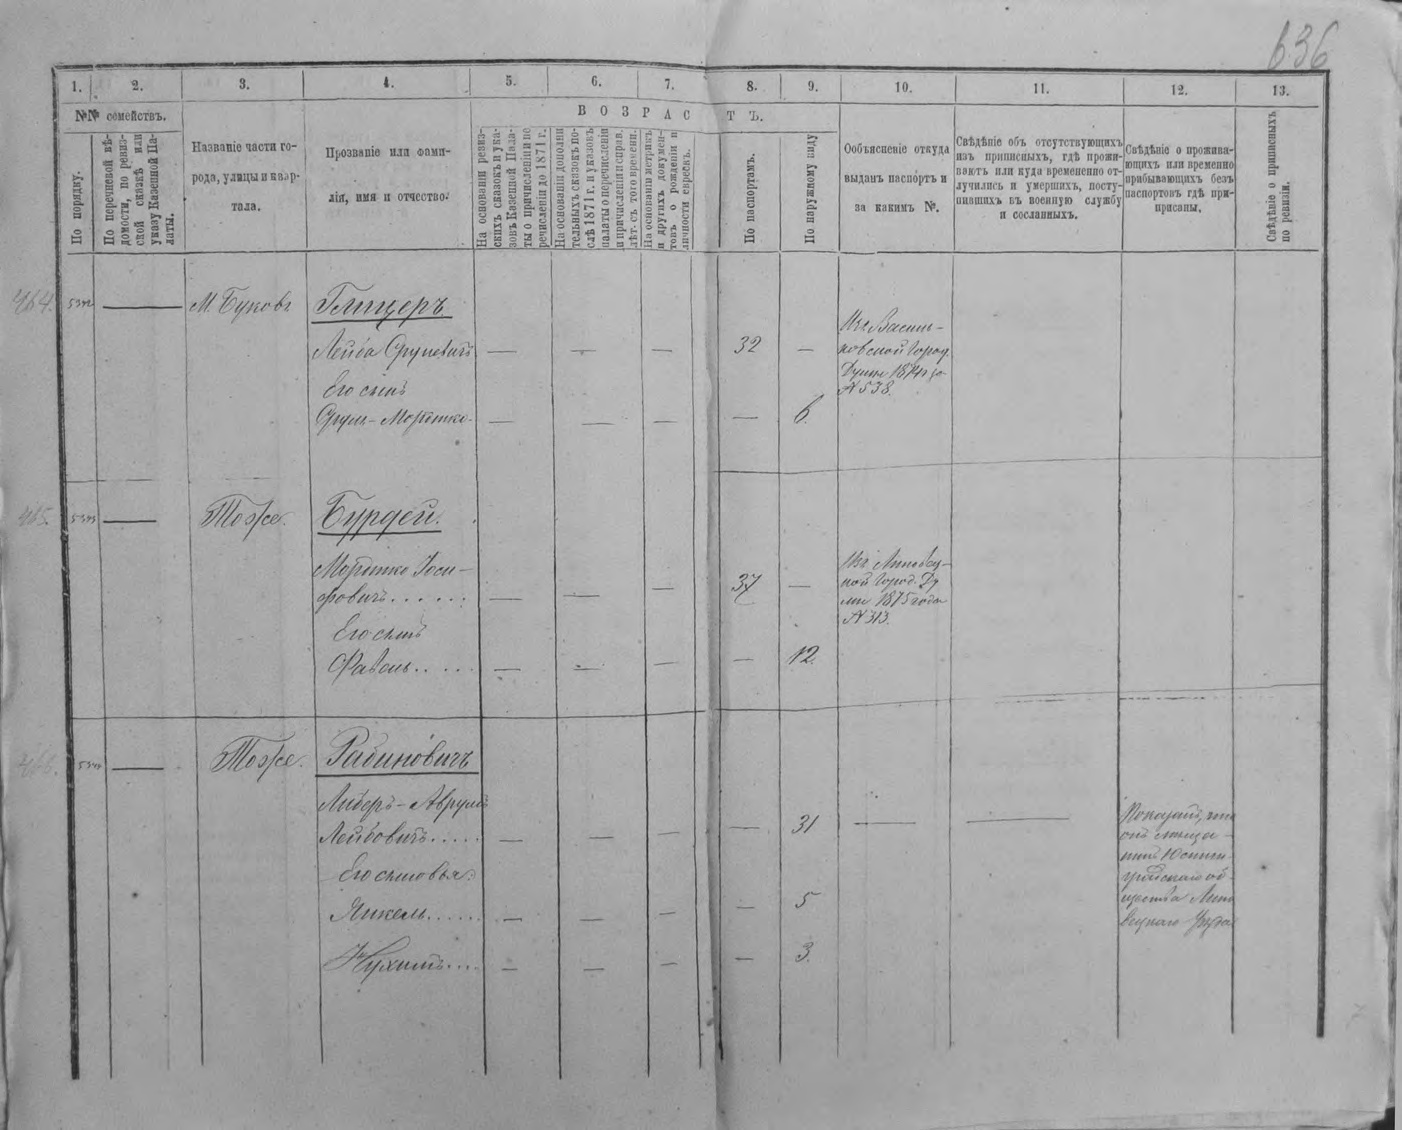 636
1. 2. 3. 4. 5. 6. 7. 8. 9. 10. 11. 12. 13.
№№ семействъ.
По порядку.
По перечневой вѣ-
домости, по ревиз-
ской сказкѣ или
указу Казенной Па-
латы.
Названіе части го-
рода, улицы и квар-
тала.
Прозваніе или фами-
лія, имя и отчество.
ВОЗРАСТЪ.
На основаніи ревиз-
скихъ сказокъ и ука-
зовъ Казенной Пала-
ты о причисленіи и пе
речисленіи до 1871 г.
На основаніи дополни
тельныхъ сказокъ по-
слѣ 1871 г. и указовъ
палаты о перечисленіи
и причисленіи и справ.
лѣт. съ того времени.
На основаніи метрикъ
и другихъ докумен-
товъ о рожденіи и
личности евреевъ.
По паспортамъ.
По наружному виду
Ообъясненіе откуда
выданъ паспортъ и
за какимъ №.
Свѣдѣніе объ отсутствующихъ
изъ приписныхъ, гдѣ прожи-
ваютъ или куда времененно от-
лучились и умершихъ, посту-
пившихъ въ военную службу
и сосланныхъ.
Свѣдѣніе о прожива-
ющихъ или временно
прибывающихъ безъ
паспортовъ гдѣ при-
приcаны.
Свѣдѣніе о приписныхъ
по ревизіи.
464.
М. Буковъ
Глицеръ
Лейба Сруневичъ
32
Изъ Василь-
ковской Город.
Думы 1874 г за
№ 538.
Его сынъ
Сруль-Мордтко.
6.
465.
Тоже.
Бурдей.
Мордтко Іоси-
фовичъ......
37
Изъ Липовец-
кой Город. Ду
мы 1875 года
№ 313.
Его сынъ
Фавель.....
12.
466.
Тоже.
Рабиновичъ
Либеръ-Аврумъ
Лейбовичъ.....
31
Показалъ, что
онъ мѣща-
нинъ Юстин-
градскаго об-
щества Липо
вецкаго уѣзда
Его сыновья:
Янкель......
5
Нухимъ...
3.